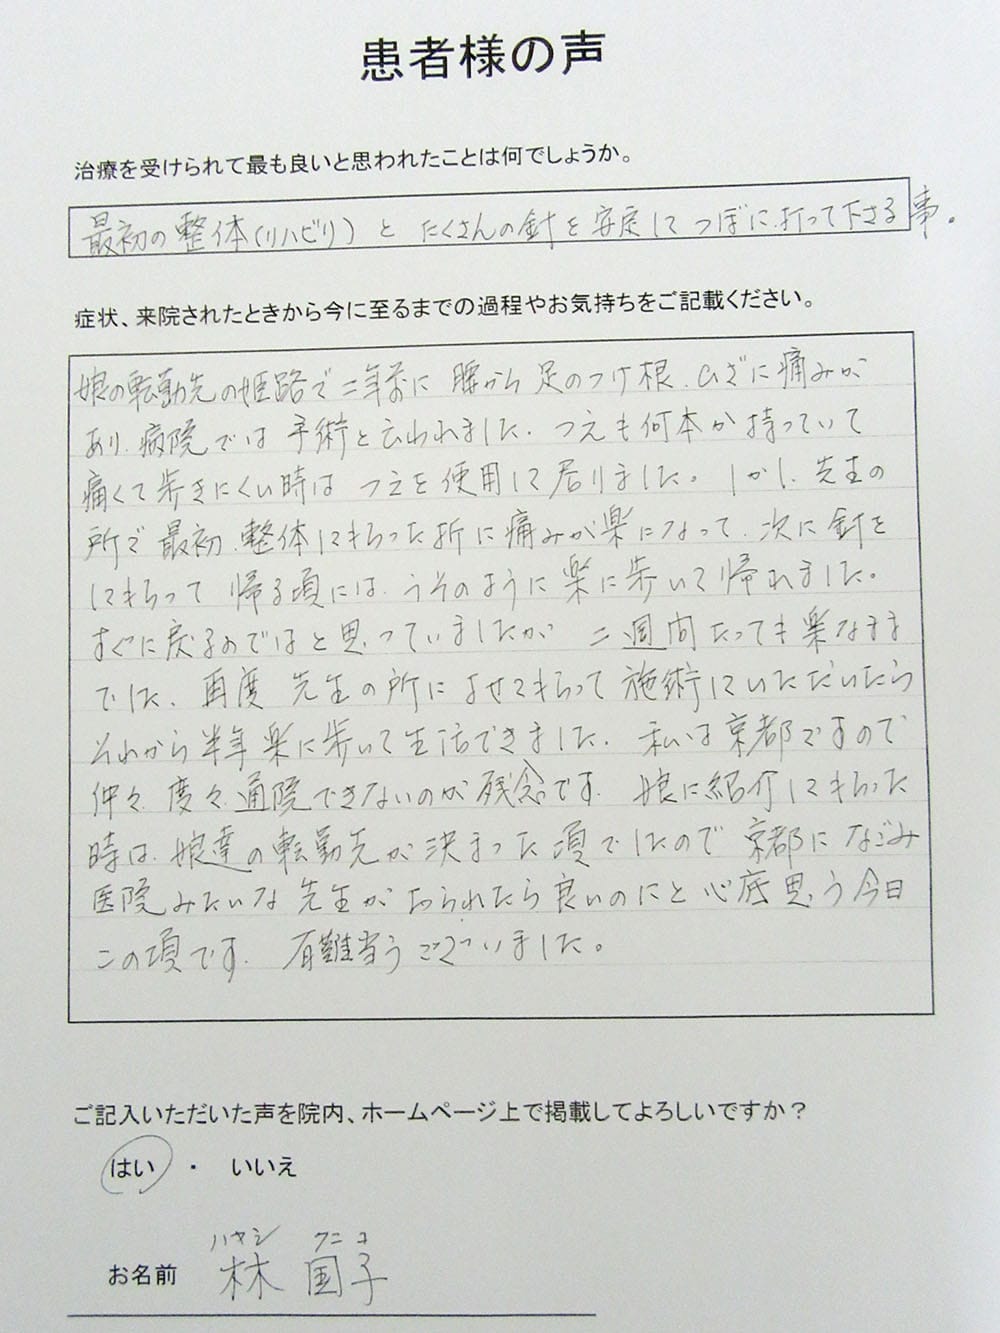 患者様の声
治療を受けられて最も良いと思われたことは何でしょうか。
最初の整体(リハビリ)と たくさんの針を安定して つぼに打って下さる事。
症状、来院されたときから今に至るまでの過程やお気持ちをご記載ください。
娘の転勤先の姫路で二年前に 腰から 足のつけ根、ひざに痛みが
あり、病院では 手術と云われました。つえも何本か持っていて
痛くて歩きにくい時は つえを使用して居りました。しかし、先生の
所で最初、整体してもらった折に痛みが楽になって、次に針を
してもらって 帰る頃には、うそのように楽に歩いて帰れました。
すぐに戻るのではと思っていましたが 二週間たっても楽なまま
でした。再度 先生の所によせてもらって施術していただいたら
それから半年楽に歩いて生活できました。私は京都ですので
仲々、度々、通院できないのが残念です。娘に紹介してもらった
時は、娘達の転勤先が決まった頃でしたので 京都になごみ
医院みたいな 先生がおられたら良いのにと心底思う今日
この頃です。有難当うございました。
ご記入いただいた声を院内、ホームページ上で掲載してよろしいですか？
はい ・ いいえ
ハヤシ クニコ
お名前 林 国子